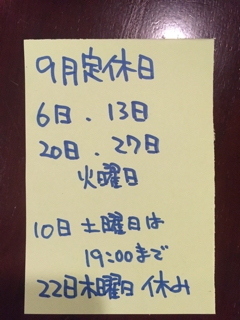 9月定休日
6日、13日
20日、27日
火曜日
10日 土曜日は
19:00まで
22日木曜日 休み